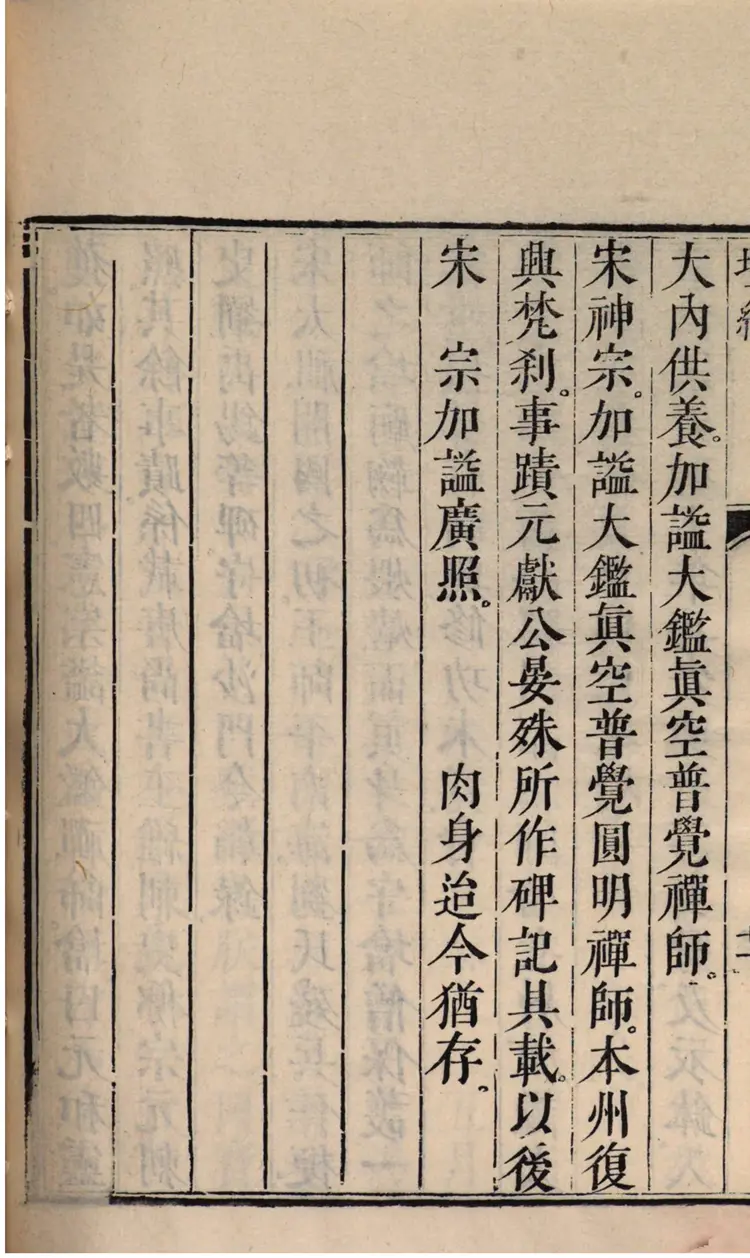 大內供養。加謚大鑑眞空普覺禪師。
宋神宗。加謚大鑑眞空普覺圓明禪師。本州復
興梵刹。事蹟元獻公晏殊所作碑記具載。以後
宋　宗加謚廣照。　　　肉身迨今猶存。